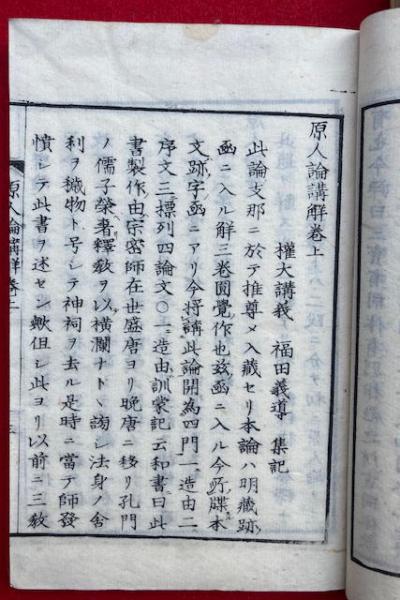 原人論講解卷上
權大講義 福田義導 集記
此論支那ニ於テ推尊メ入藏セリ本論ハ明藏跡
函ニ入ル解三卷圓覺作也茲函ニ入ル今所牒本
文跡字函ニアリ今將講此論開為四門一造由二
序文三標列四論文○一造由訓蒙記云和書曰此
書製作由宗密師在世盛唐ヨリ晚唐ニ移リ孔門
ノ儒子榮奢釋教ヲ以橫瀾ナドヽ謗シ法身ノ舍
利ヲ穢物ト号シテ神祠ヲ去ル是時ニ當テ師發
憤シテ此書ヲ述セシ歟但シ此ヨリ以前ニ三教
原人論講解卷上